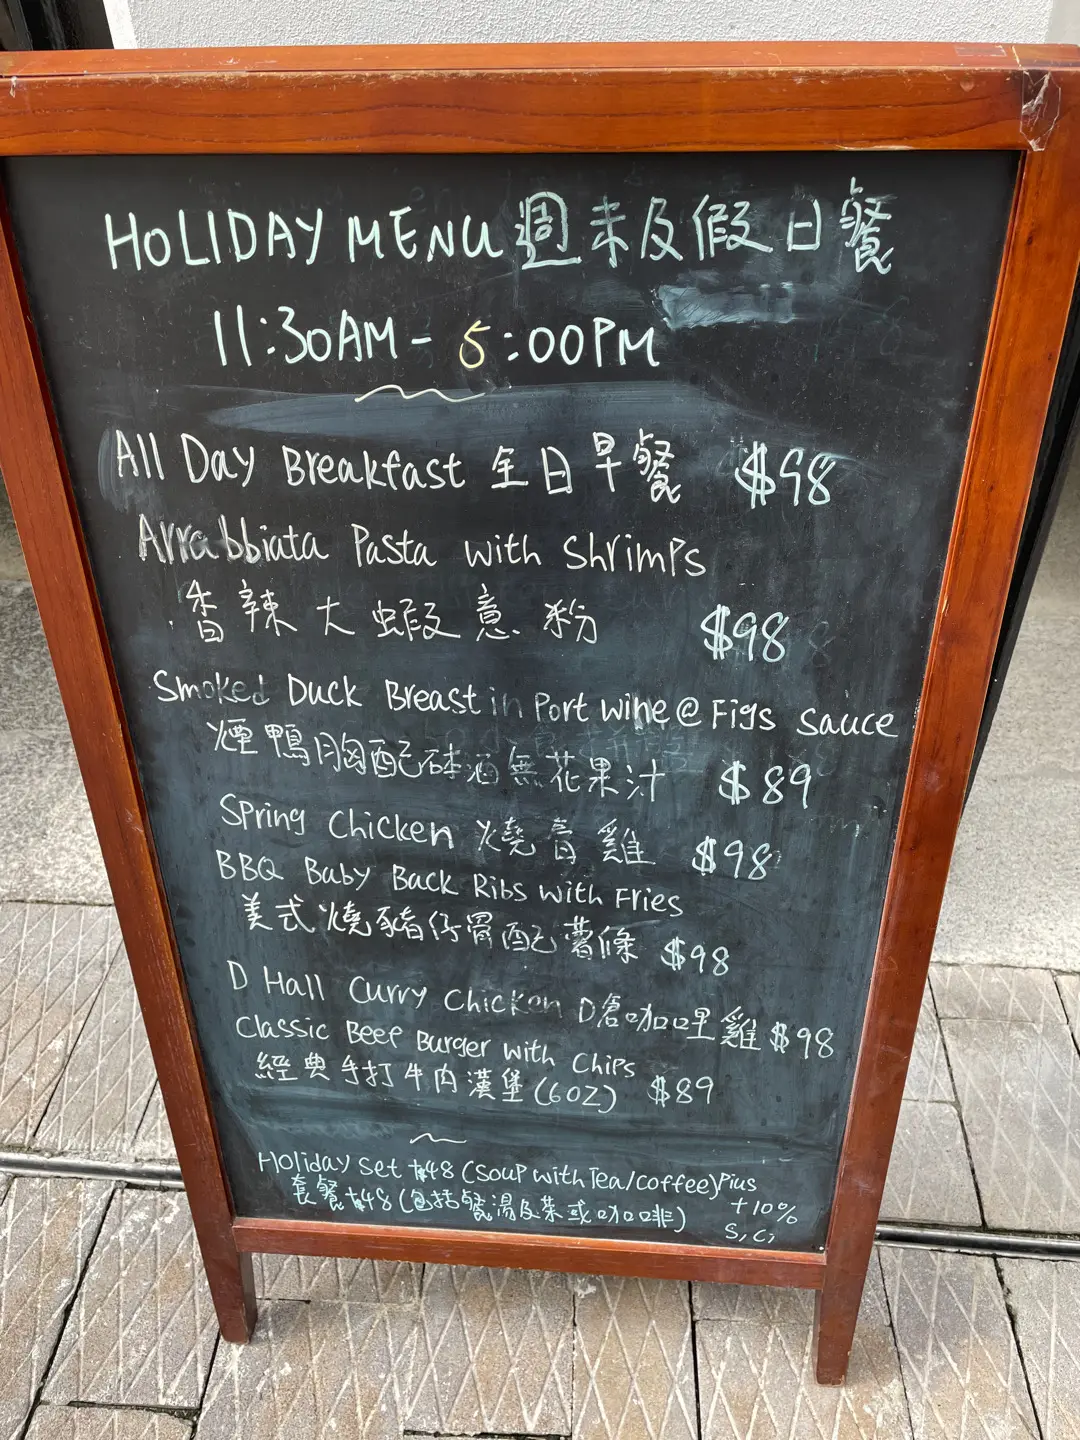 HOLIDAY MENU 週末及假日餐
11:30AM - 5:00PM
All Day Breakfast 全日早餐 $98
Arrabbiata Pasta with Shrimps
香辣大蝦意粉 $98
Smoked Duck Breast in Port wine @ Figs sauce
煙鴨胸配砵酒無花果汁 $89
Spring Chicken 燒春雞 $98
BBQ Baby Back Ribs with Fries
美式燒豬仔骨配薯條 $98
D Hall Curry Chicken D倉咖哩雞 $98
Classic Beef Burger with Chips
經典手打牛肉漢堡(6OZ) $89
Holiday Set +$48 (Soup with Tea/coffee) Plus
套餐+$48 (包括餐湯及茶或咖啡) +10%
S,C,